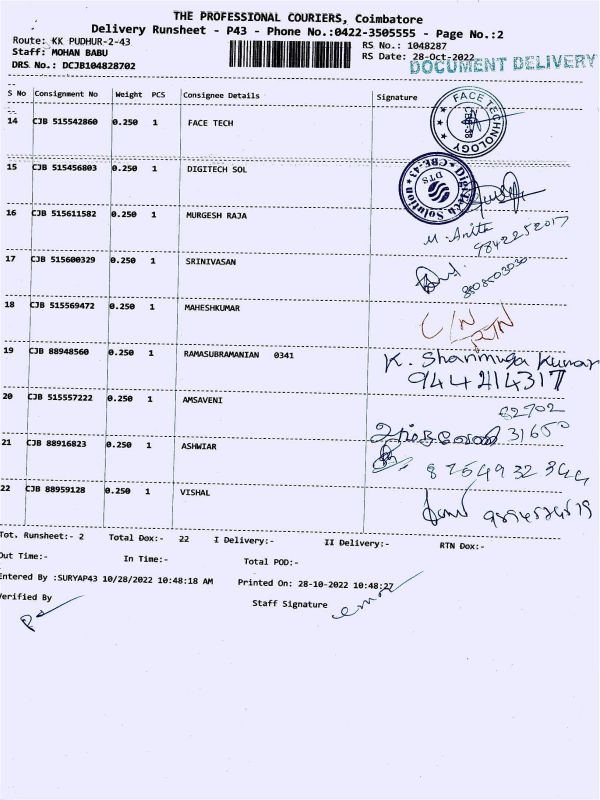 THE PROFESSIONAL COURIERS, Coimbatore
Delivery Runsheet - P43 - Phone No.:0422-3505555 - Page No.:2
Route: KK PUDHUR-2-43
RS No.: 1048287
Staff: MOHAN BABU
RS Date: 28-Oct-2022
DRS No.: DCJB104828702
DOCUMENT DELIVERY
S No Consignment No Weight PCS Consignee Details Signature
14 CJB 515542860 0.250 1 FACE TECH
FACE TECHNOLOGY
CBE-38
15 CJB 515456803 0.250 1 DIGITECH SOL
DigiTech Solution
CBE-43
DTS
16 CJB 515611582 0.250 1 MURGESH RAJA
M. Anitha
9842252017
17 CJB 515600329 0.250 1 SRINIVASAN
18 CJB 515569472 0.250 1 MAHESHKUMAR
C/N
RTN
19 CJB 88948560 0.250 1 RAMASUBRAMANIAN 0341
K. Shanmuga Kumar
9442414317
20 CJB 515557222 0.250 1 AMSAVENI
82702
31650
21 CJB 88916823 0.250 1 ASHWIAR
8754932344
22 CJB 88959128 0.250 1 VISHAL
Tot. Runsheet:- 2 Total Dox:- 22 I Delivery:- II Delivery:- RTN Dox:-
Out Time:- In Time:- Total POD:-
Entered By :SURYAP43 10/28/2022 10:48:18 AM Printed On: 28-10-2022 10:48:27
Verified By Staff Signature